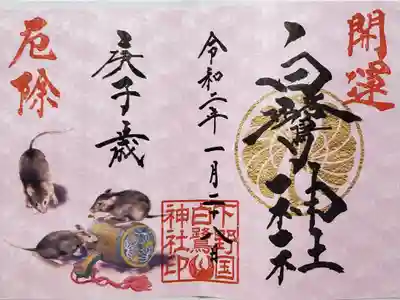 開運
白鷺神社
令和二年 一月二十八日
下野国
白鷺
神社印
庚子歳
厄除